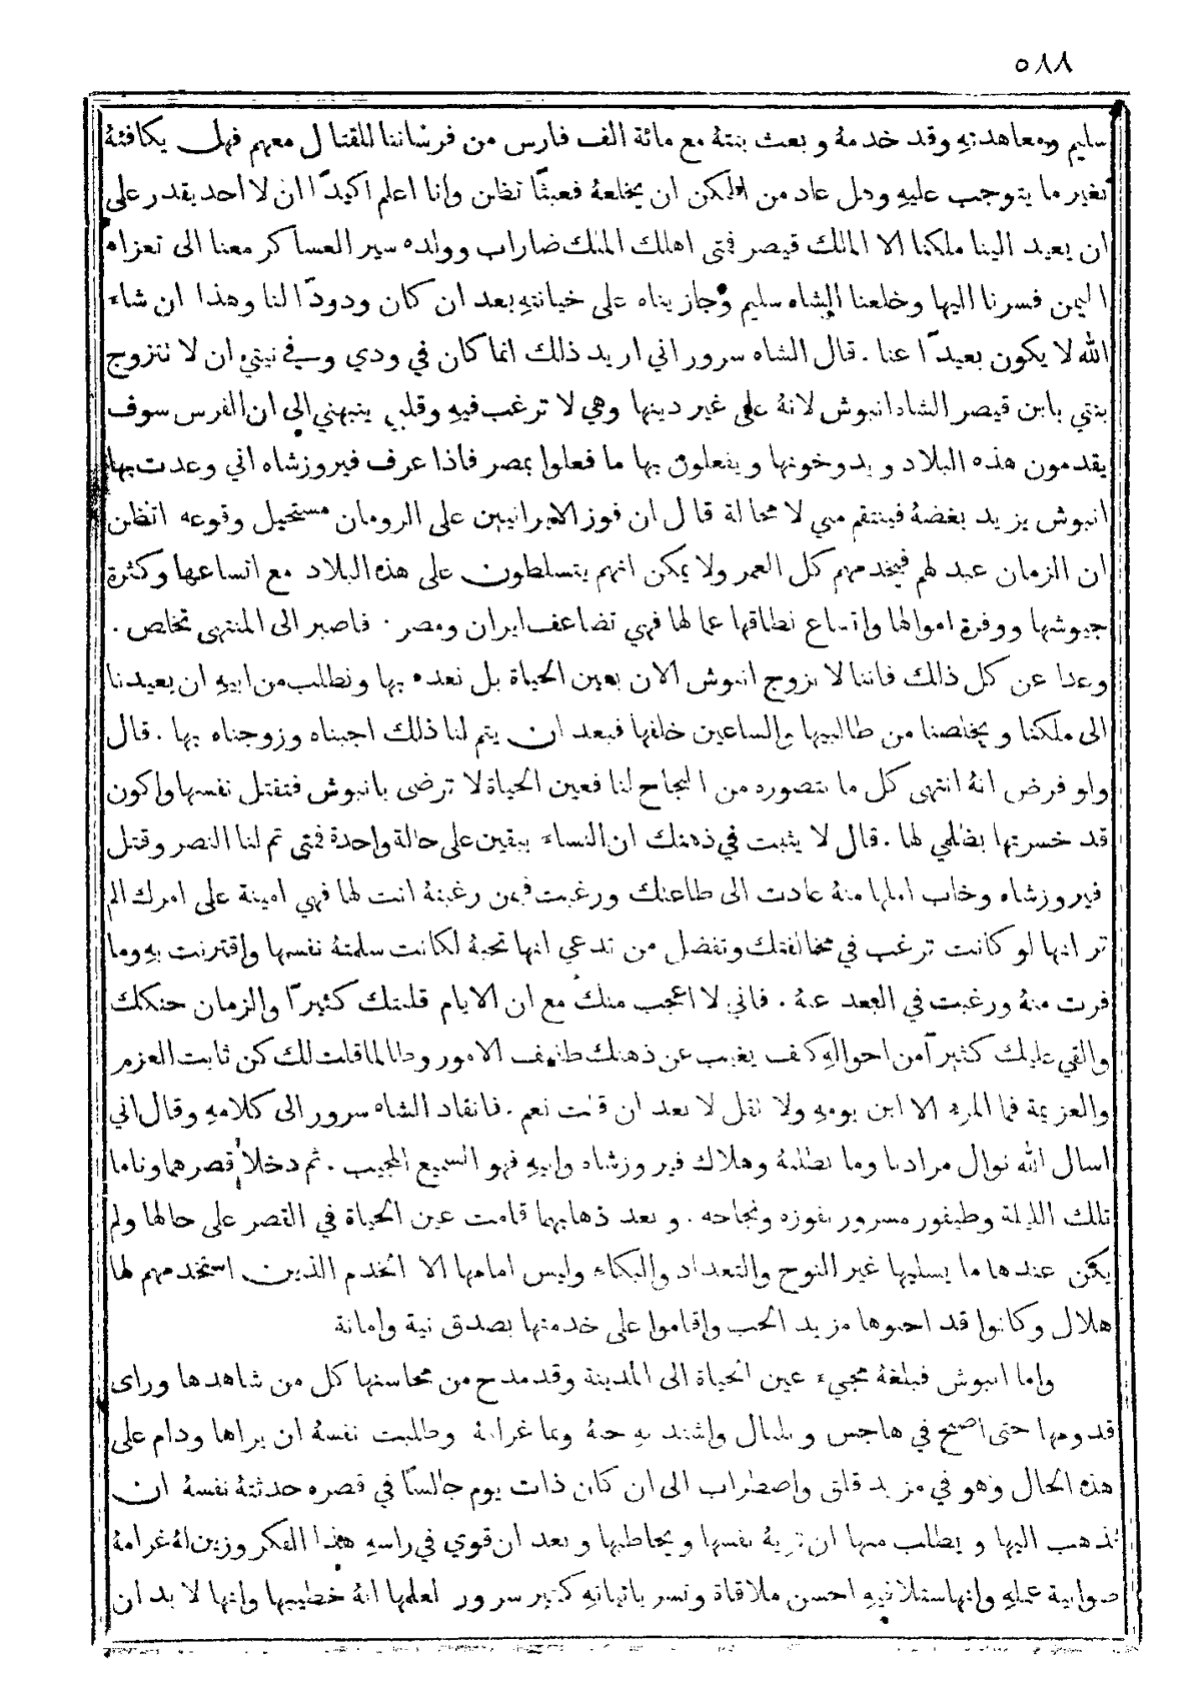 ٥٨٨
سليم ومعاهدتهِ وقد خدمهُ وبعث بنتهُ مع مائة الف فارس من فرساننا للقتال معهم فهل يكافئهُ
بغير ما يتوجب عليهِ وهل عاد من الممكن ان يخلعهُ فعبثًا تظن وانا اعلم اكيدًا ان لا احد يقدر على
ان يعيد الينا ملكنا الا الملك قيصر فمتى اهلك الملك ضاراب وولده سير العساكر معنا الى تعزاء
اليمن فسرنا اليها وخلعنا الشاه سليم وجازيناه على خيانتهِ بعد ان كان ودودًا لنا وهذا ان شاء
الله لا يكون بعيدًا عنا . قال الشاه سرور اني اريد ذلك انما كان في ودي وفي نيتي ان لا تتزوج
بنتي بابن قيصر الشاه انبوش لانهُ على غير دينها وهي لا ترغب فيهِ وقلبي ينبهني الى ان الفرس سوف
يقدمون هذه البلاد ويدوخونها ويفعلون بها ما فعلوا بمصر فاذا عرف فيروزشاه اني وعدت بها
انبوش يزيد بغضهُ فينتقم مني لا محالة قال ان فوز الايرانيين على الرومان مستحيل وقوعه اتظن
ان الزمان عبد لهم فيخدمهم كل العمر ولا يمكن انهم يتسلطون على هذه البلاد مع اتساعها وكثرة
جيوشها ووفرة اموالها واتساع نطاقها عمالها فهي تضاعف ايران ومصر . فاصبر الى المنتهى تخلص .
وعدا عن كل ذلك فاننا لا نزوج انبوش الان بعين الحياة بل نعده بها ونطلب من ابيهِ ان يعيدنا
الى ملكنا ويخلصنا من طالبيها والساعين خلفها فبعد ان يتم لنا ذلك اجبناه وزوجناه بها . قال
ولو فرض انهُ انتهى كل ما نتصوره من النجاح لنا فعين الحياة لا ترضى بانبوش فتقتل نفسها واكون
قد خسرتها بظلمي لها . قال لا يثبت في ذهنك ان النساء يبقين على حالة واحدة فمتى تم لنا النصر وقتل
فيروزشاه وخاب املها منهُ عادت الى طاعتك ورغبت فيمن رغبتهُ انت لها فهي امينة على امرك الم
تر انها لو كانت ترغب في مخالفتك وتفضل من تدعي انها تحبهُ لكانت سلمتهُ نفسها واقترنت بهِ وما
فرت منهُ ورغبت في البعد عنهُ . فاني لا اعجب منك مع ان الايام قلبتك كثيرًا والزمان حنكك
والقي عليك كثيرًا من احوالهِ كيف يغيب عن ذهنك طفيف الامور وطالما قلت لك كن ثابت العزم
والعزيمة فما المرء الا ابن يومهِ ولا تقل لا بعد ان قلت نعم . فانقاد الشاه سرور الى كلامهِ وقال اني
اسال الله نوال مرادنا وما نطلبهُ وهلاك فيروزشاه وابيهِ فهو السميع المجيب . ثم دخلا قصرهما وناما
تلك الليلة وطيفور مسرور بفوزه ونجاحه . وبعد ذهابهما قامت عين الحياة في القصر على حالها ولم
يكن عندها ما يسليها غير النوح والتعداد والبكاء وليس امامها الا الخدم الذين استخدمهم لها
هلال وكانوا قد احبوها مزيد الحب واقاموا على خدمتها بصدق نية وامانة
واما انبوش فبلغهُ مجيء عين الحياة الى المدينة وقد مدح من محاسنها كل من شاهدها وراى
قدومها حتى اصبح في هاجس وبلبال واشتد بهِ حبهُ ونما غرامهُ وطلبت نفسهُ ان يراها ودام على
هذه الحال وهو في مزيد قلق واضطراب الى ان كان ذات يوم جالسًا في قصره حدثتهُ نفسهُ ان
يذهب اليها ويطلب منها ان تريهُ نفسها ويخاطبها وبعد ان قوي في راسهِ هذا الفكر وزين لهُ غرامهُ
صوابية عملهِ وانها ستلاقيهِ احسن ملاقاة وتسر باتيانهِ كثير سرور لعلمها انهُ خطيبها وانها لا بد ان